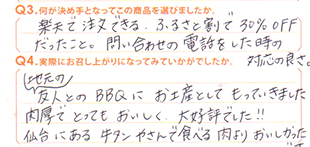 Q3.何が決め手となってこの商品を選びましたか。
楽天で注文できる。ふるさと割で30%OFF
だったこと。問い合わせの電話をした時の
対応の良さ。
Q4.実際にお召し上がりになってみていかがでしたか。
地元の
友人とのBBQにお土産としてもっていきました
肉厚でとってもおいしく、大好評でした!!
仙台にある牛タンやさんで食べる肉よりおいしかった